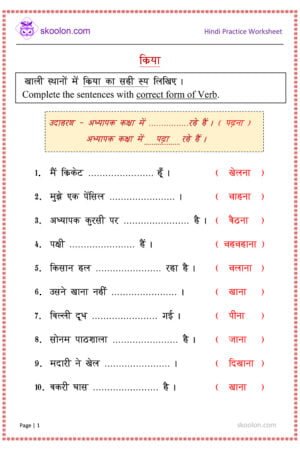 skoolon.com
Hindi Practice Worksheet
क्रिया
खाली स्थानों में क्रिया का सही रूप लिखिए ।
Complete the sentences with correct form of Verb.
उदाहरण – अध्यापक कक्षा में ................रहे हैं । ( पढ़ना )
अध्यापक कक्षा में ....पढ़ा.... रहे हैं ।
१. मैं क्रिकेट .................... हूँ । ( खेलना )
२. मुझे एक पेंसिल ........................ । ( चाहना )
३. अध्यापक कुरसी पर ........................ है । ( बैठना )
४. पक्षी .................... हैं । ( चहचहाना )
५. किसान हल .................... रहा है । ( चलाना )
६. उसने खाना नहीं .................... । ( खाना )
७. बिल्ली दूध .................... गई । ( पीना )
८. सोनम पाठशाला .................... है । ( जाना )
९. मदारी ने खेल .................... । ( दिखाना )
१०. बकरी घास .................... है । ( खाना )
Page | 1
skoolon.com